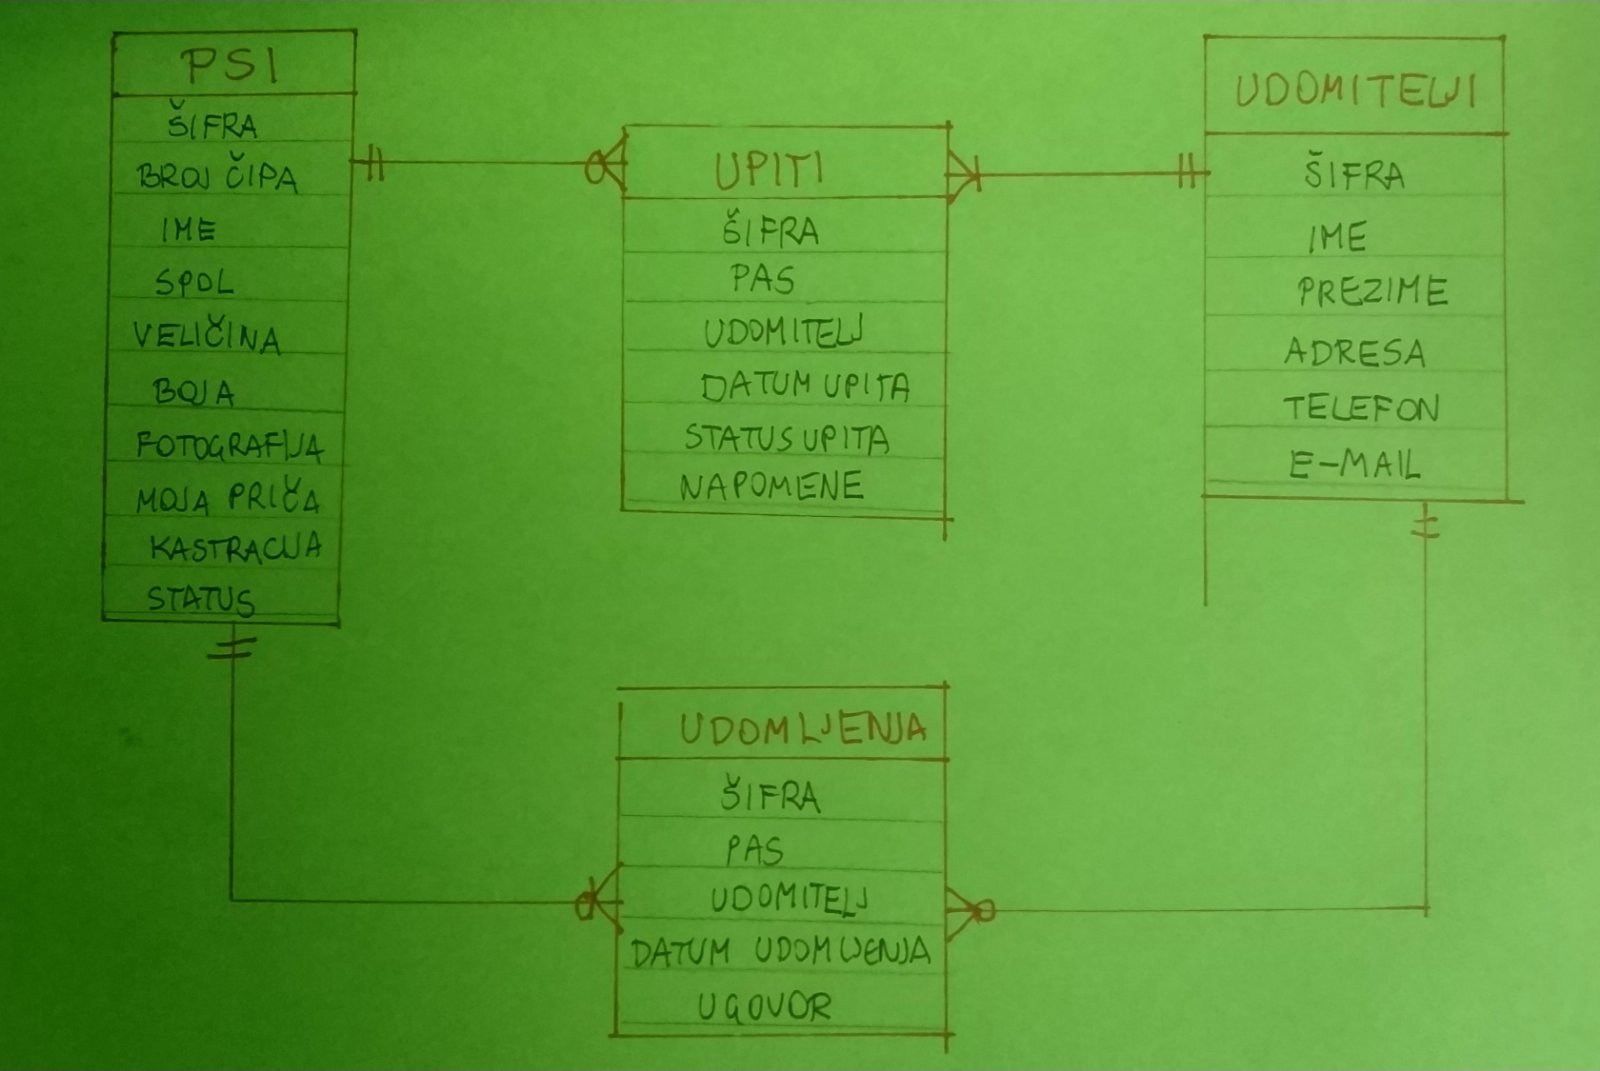 PSI
ŠIFRA
BROJ ČIPA
IME
SPOL
VELIČINA
BOJA
FOTOGRAFIJA
MOJA PRIČA
KASTRACIJA
STATUS
UPITI
ŠIFRA
PAS
UDOMITELJ
DATUM UPITA
STATUS UPITA
NAPOMENE
UDOMITELJI
ŠIFRA
IME
PREZIME
ADRESA
TELEFON
E-MAIL
UDOMLJENJA
ŠIFRA
PAS
UDOMITELJ
DATUM UDOMLJENJA
UGOVOR